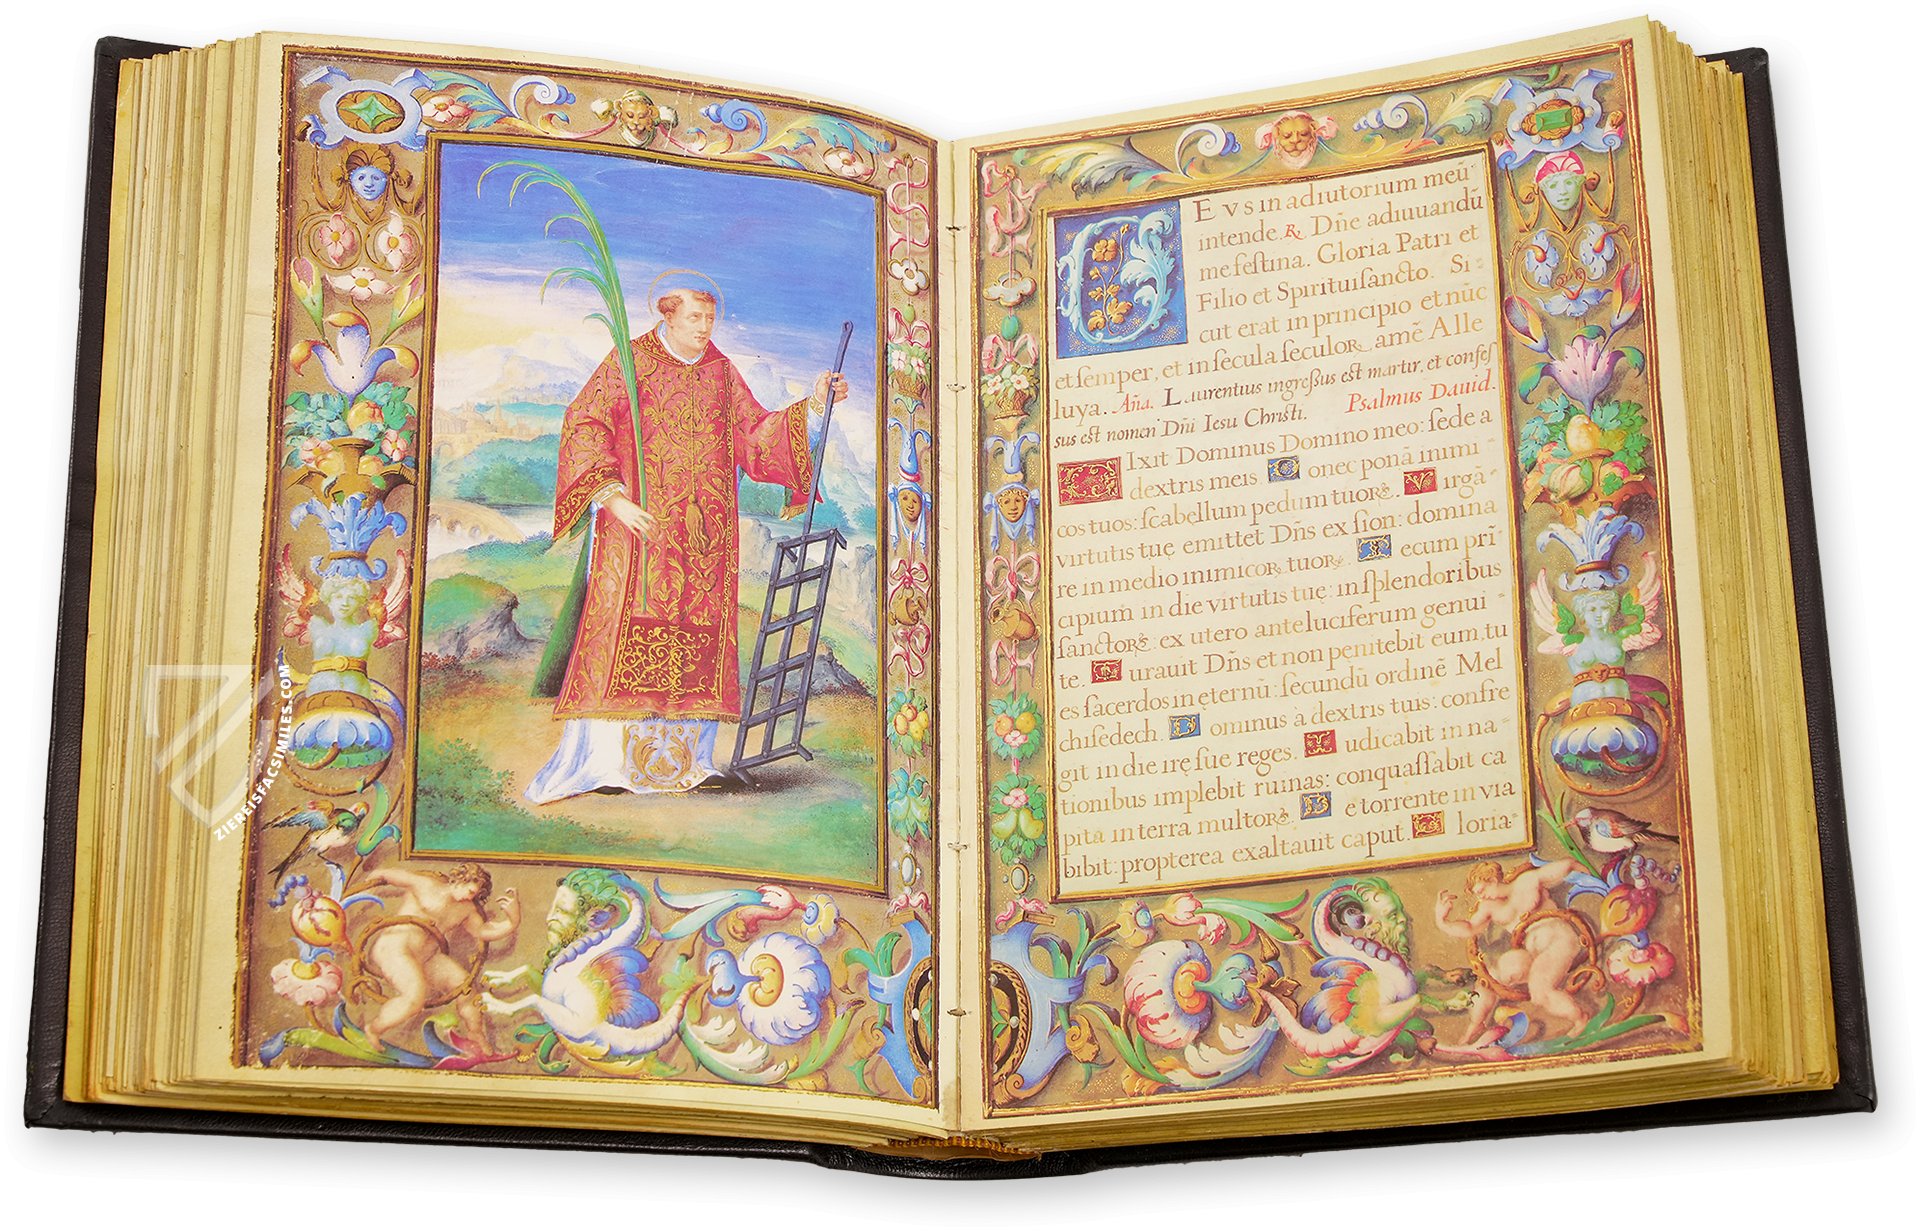 EVS in adiutorium meū
intende. R. Dñe adiuuandū
me festina. Gloria Patri et
Filio et Spirituisancto. Si-
cut erat in principio et nūc
et semper, et in secula seculoꝝ, amē Alle
luya. Aña. Laurentius ingressus est martir, et confes
sus est nomen Dñi Iesu Christi. Psalmus Dauid.
DIxit Dominus Domino meo: sede a
dextris meis. Donec ponā inimi-
cos tuos: scabellum pedum tuoꝝ. Virgā-
virtutis tuę emittet Dñs ex sion: domina
re in medio inimicoꝝ tuoꝝ. Tecum prī-
cipium̄ in die virtutis tuę: in splendoribus
sanctoꝝ: ex utero ante luciferum genui-
te. Iurauit Dñs et non penitebit eum, tu
es sacerdos in ęternū: secundū ordinē Mel
chisedech. Dominus à dextris tuis: confre
git in die irę sue reges. Iudicabit in na-
tionibus implebit ruinas: conquassabit ca
pita in terra multoꝝ. De torrente in via
bibit: propterea exaltauit caput. Gloria-
ZIEREISFACSIMILES.COM